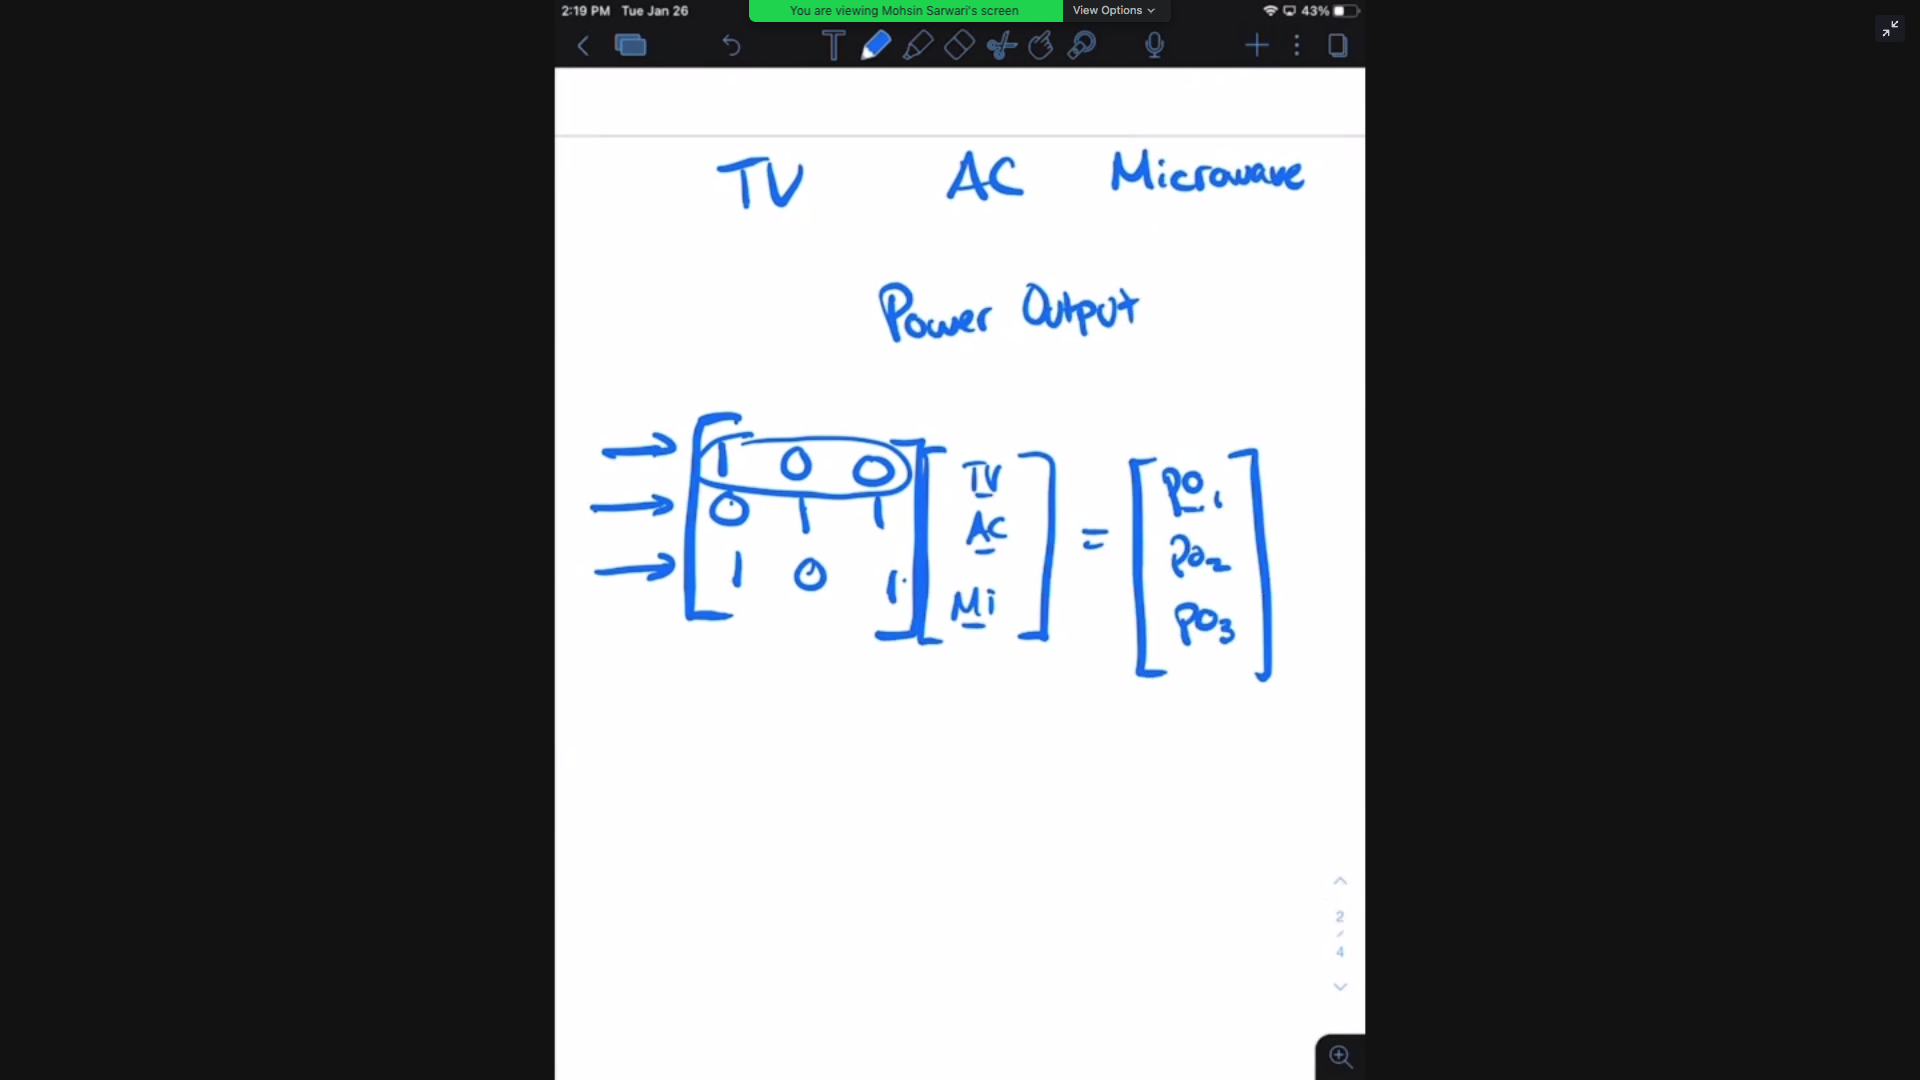 2:19 PM Tue Jan 26 You are viewing Mohsin Sarwari's screen View Options 43%
T
TV AC Microwave
Power Output
1 0 0 TV PO1
0 1 1 AC = PO2
1 0 1 Mi PO3
2
/
4